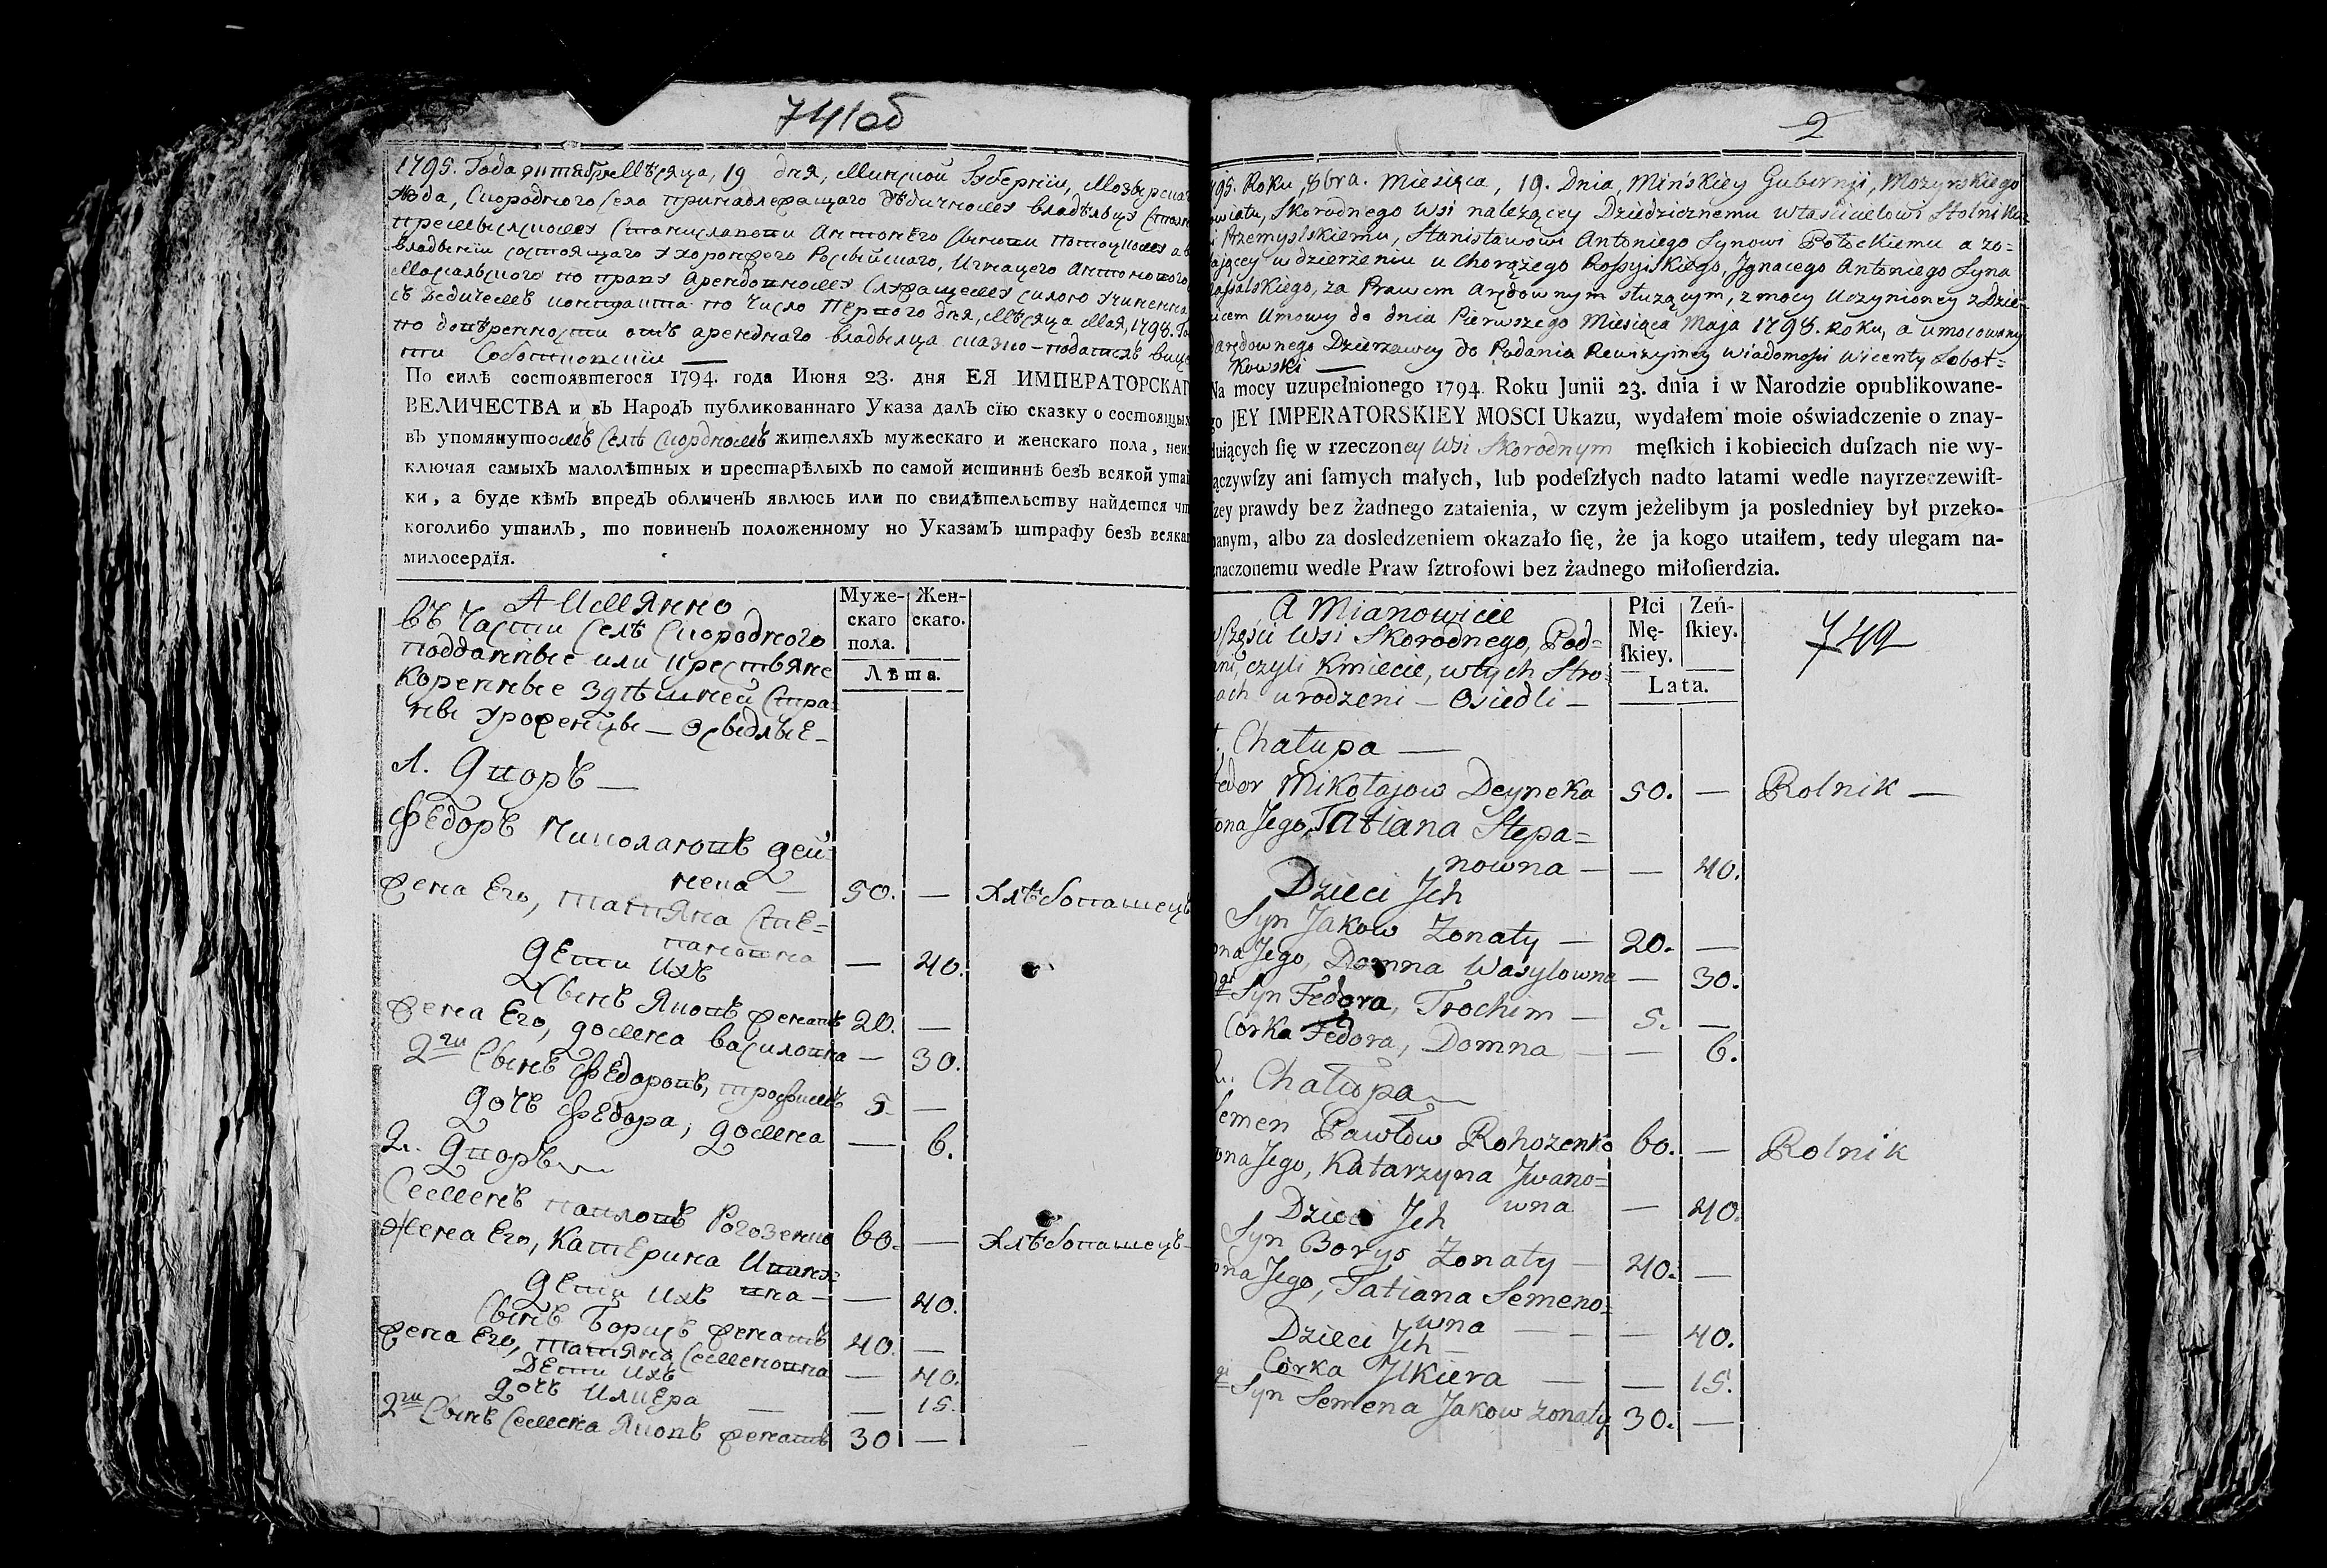 741об
1795. Года октября Мѣсяца, 19 дня, Минской Губернїи, Мозырскаг
Скороднаго Села принадлежащаго дѣдичному владѣльцу
Станиславови Антонего Сынови Потоцкому а в
владѣнїи состоящаго у хоронжего Россыйскаго, Игнацего Антонового
по праву Арендовному служащему силою учиненна
съ Дедичемъ контракта по число Первого дня, Мѣсяца Мая, 1798. Го
по довѣренности отъ аренднаго владѣлца сказко-подателъ
Соботковскїи —
По силѣ состоявшегося 1794. года Июня 23. дня ЕЯ ИМПЕРАТОРСКАГ
ВЕЛИЧЕСТВА и въ Народъ публикованнаго Указа далъ сїю сказку о состоящыхъ
въ упомянутоомъ Селѣ Скородномъ жителяхъ мужескаго и женскаго пола, неис
ключая самыхъ малолѣтныхъ и престарѣлыхъ по самой истиннѣ безъ всякой утай
ки, а буде кѣмъ впредъ обличенъ явлюсь или по свидѣтельству найдется чт
коголибо утаилъ, то повиненъ положенному по Указамъ штрафу безъ всякаг
милосердїя.
А Имянно
въ Части Селѣ Скородного
подданные или крестьяне
коренные здѣшней Стра-
ны уроженцы — Осѣдлые —
Муже-
скаго
пола.
Жен-
скаго.
Лѣта.
1. Дворъ —
Федоръ Миколаювъ Дей-
нека — 50. — Хлѣбопашецъ
жена Его, татіяна Сте-
пановна — 40.
Дети Ихъ
Сынъ Яковъ женатъ 20. —
жена Его, Домна василовна — 30.
2ги Сынъ Федоровъ, трофимъ 5. —
Дочъ Федора, Домна — 6.
2. Дворъ
Семенъ павловъ Рогозенко 60. — Хлѣбопашецъ —
Жена Его, Катерина Ивано-
вна — — 40.
Дети Ихъ
Сынъ Борисъ женатъ 40. —
жена Его, татіяна Семеновна — 40.
Дети Ихъ
Дочъ Илкера — — 15.
2ги Сынъ Семена Яковъ женатъ 30 —
2
795. Roku, 8bra. Miesiąca, 19. Dnia, Mińskiey Gubernji, Mozyrskiego
owiatu, Skorodnego Wsi należącey Dziedzicznemu własćicielowi Stolniko
i Przemyslskiemu, Stanisławowi Antoniego Synowi Potockiemu a zo=
ającey w dzierżeniu u Chorążego Rossyiskiego, Jgnacego Antoniego Syna
za Prawem Arędownym służącym, z mocy Uczynioney z Dzie-
icem Umowy do dnia Pierwszego Miesiąca Maja 1798. Roku, a umocowany
Arędownego Dzierżawcy do Podania Rewizyiney wiadomości Wicenty Sobot=
kowski —
Na mocy uzupełnionego 1794. Roku Junii 23. dnia i w Narodzie opublikowane-
go JEY IMPERATORSKIEY MOSCI Ukazu, wydałem moie oświadczenie o znay-
duiących ſię w rzeczoney Wsi Skorodnym męſkich i kobiecich duſzach nie wy-
ączywſzy ani ſamych małych, lub podeſzłych nadto latami wedle nayrzeczewiſt-
zey prawdy bez żadnego zataienia, w czym jeżelibym ja posledniey był przeko-
nanym, albo za dosledzeniem okazało ſię, że ja kogo utaiłem, tedy ulegam na-
znaczonemu wedle Praw ſztrofowi bez żadnego miłoſierdzia.
A Mianowicie
w Części Wsi Skorodnego, Pod=
ani, czyli Kmiecie, w tych Stro=
nach urodzeni — Osiedli —
Płci
Mę-
ſkiey.
Zeń-
ſkiey.
Lata.
742
1. Chałupa —
Fedor Mikołajow Deyneka 50. — Rolnik —
ona Jego, Tatiana Stepa=
nowna — — 40.
Dzieci Jch
Syn Jakow Zonaty — 20. —
ona Jego, Domna Wasylowna — 30.
2gi Syn Fedora, Trochim — 5. —
Córka Fedora, Domna — — 6.
2. Chałupa —
Semen Pawłow Rohozenko 60. — Rolnik
ona Jego, Katarzyna Jwano=
wna — 40.
Dzieci Jch
Syn Borys Zonaty — 40. —
ona Jego, Tatiana Semeno=
wna — — — 40.
Dzieci Jch —
Córka Jlkiera — — 15.
2gi Syn Semena Jakow zonaty 30. —